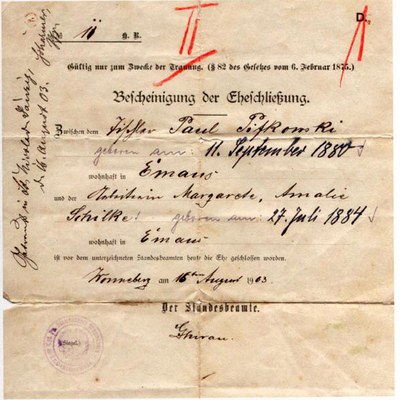 D.
No. 11 H. R.
II
1
Gültig nur zum Zwecke der Trauung. (§ 82 des Gesetzes vom 6. Februar 1875.)
Bescheinigung der Eheschließung.
Zwischen dem Tischler Paul Pifkowski
geboren am: 11. September 1880
wohnhaft in Emaus
und der Margarete, Amalie
Schilke: geboren am: 27 Juli 1884
wohnhaft in Emaus
ist vor dem unterzeichneten Standesbeamten heute die Ehe geschlossen worden.
Wonneberg am 16ten August 1903.
Der Standesbeamte.
Getraut in St.
d. 16. August 03.